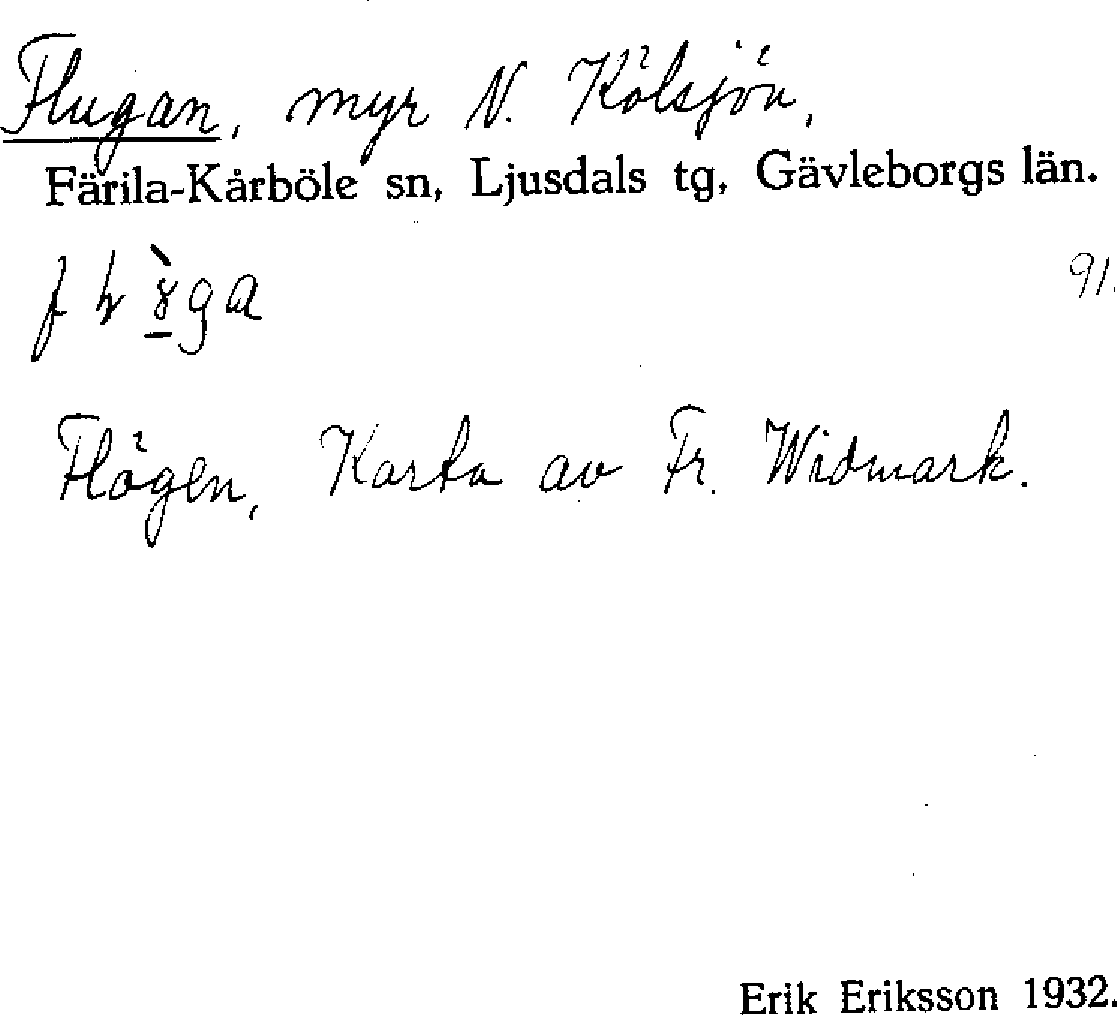 Flugan, myr N. Kölsjön,
Färila-Kårböle sn, Ljusdals tg, Gävleborgs län.
91.
Flögen, Karta av Fr. Widmark.
Erik Eriksson 1932.